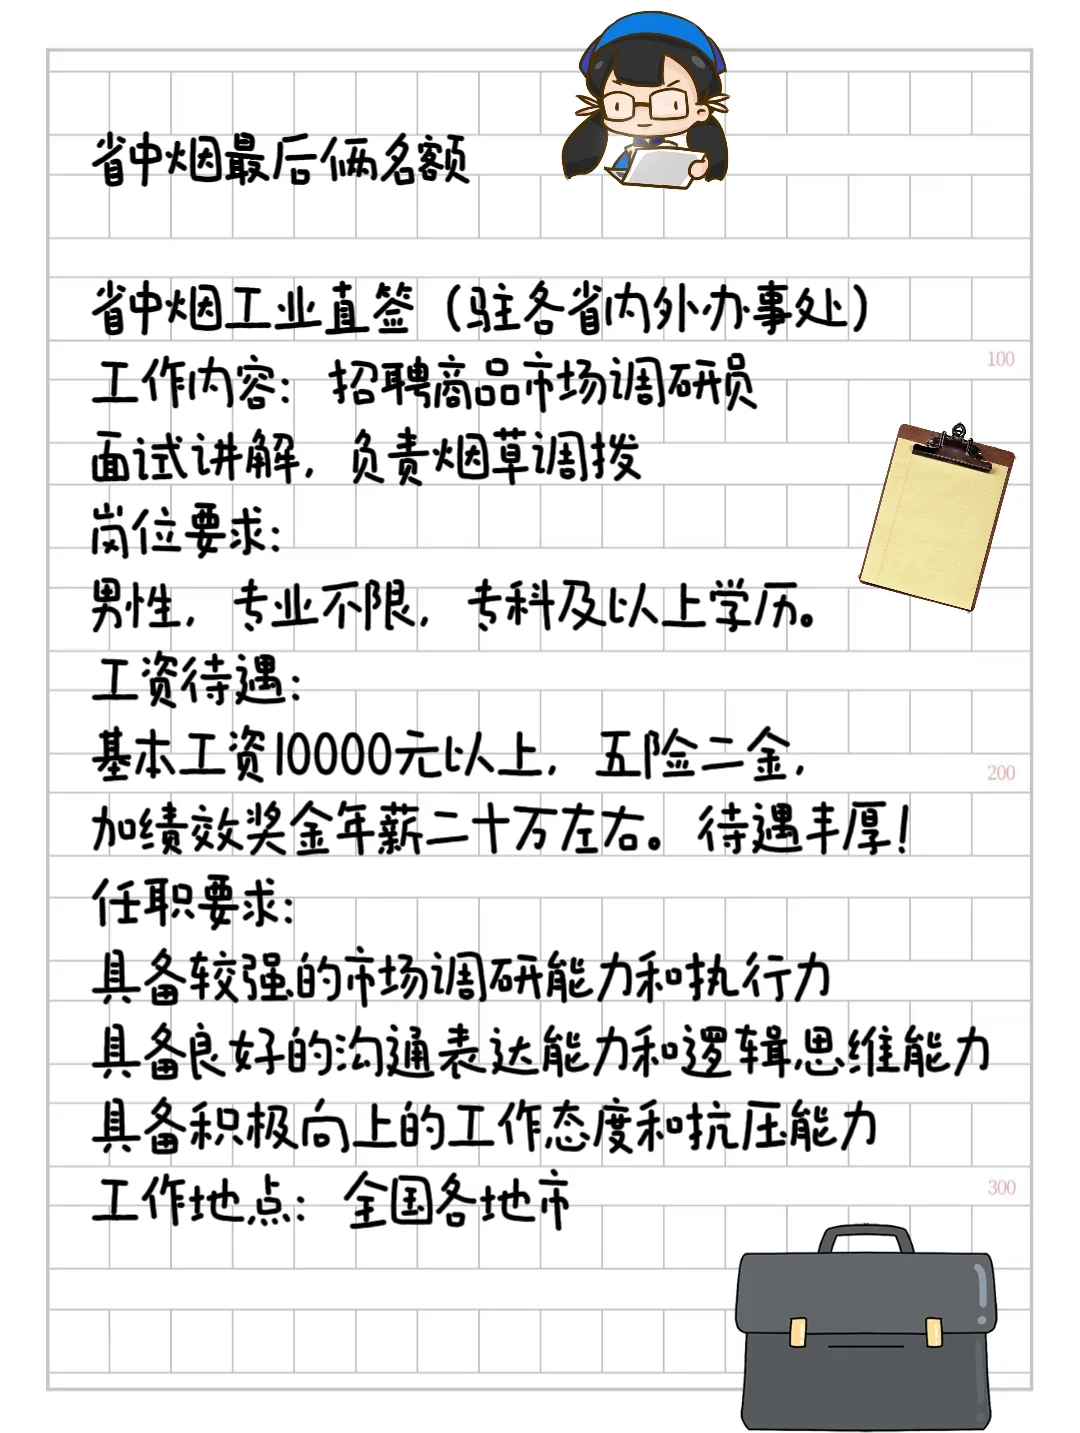 省中烟最后俩名额
省中烟工业直签（驻各省内外办事处）
100
工作内容：招聘商品市场调研员
面试讲解，负责烟草调拨
岗位要求：
男性，专业不限，专科及以上学历。
工资待遇：
基本工资10000元以上，五险二金，
200
加绩效奖金年薪二十万左右。待遇丰厚！
任职要求：
具备较强的市场调研能力和执行力
具备良好的沟通表达能力和逻辑思维能力
具备积极向上的工作态度和抗压能力
工作地点：全国各地市
300